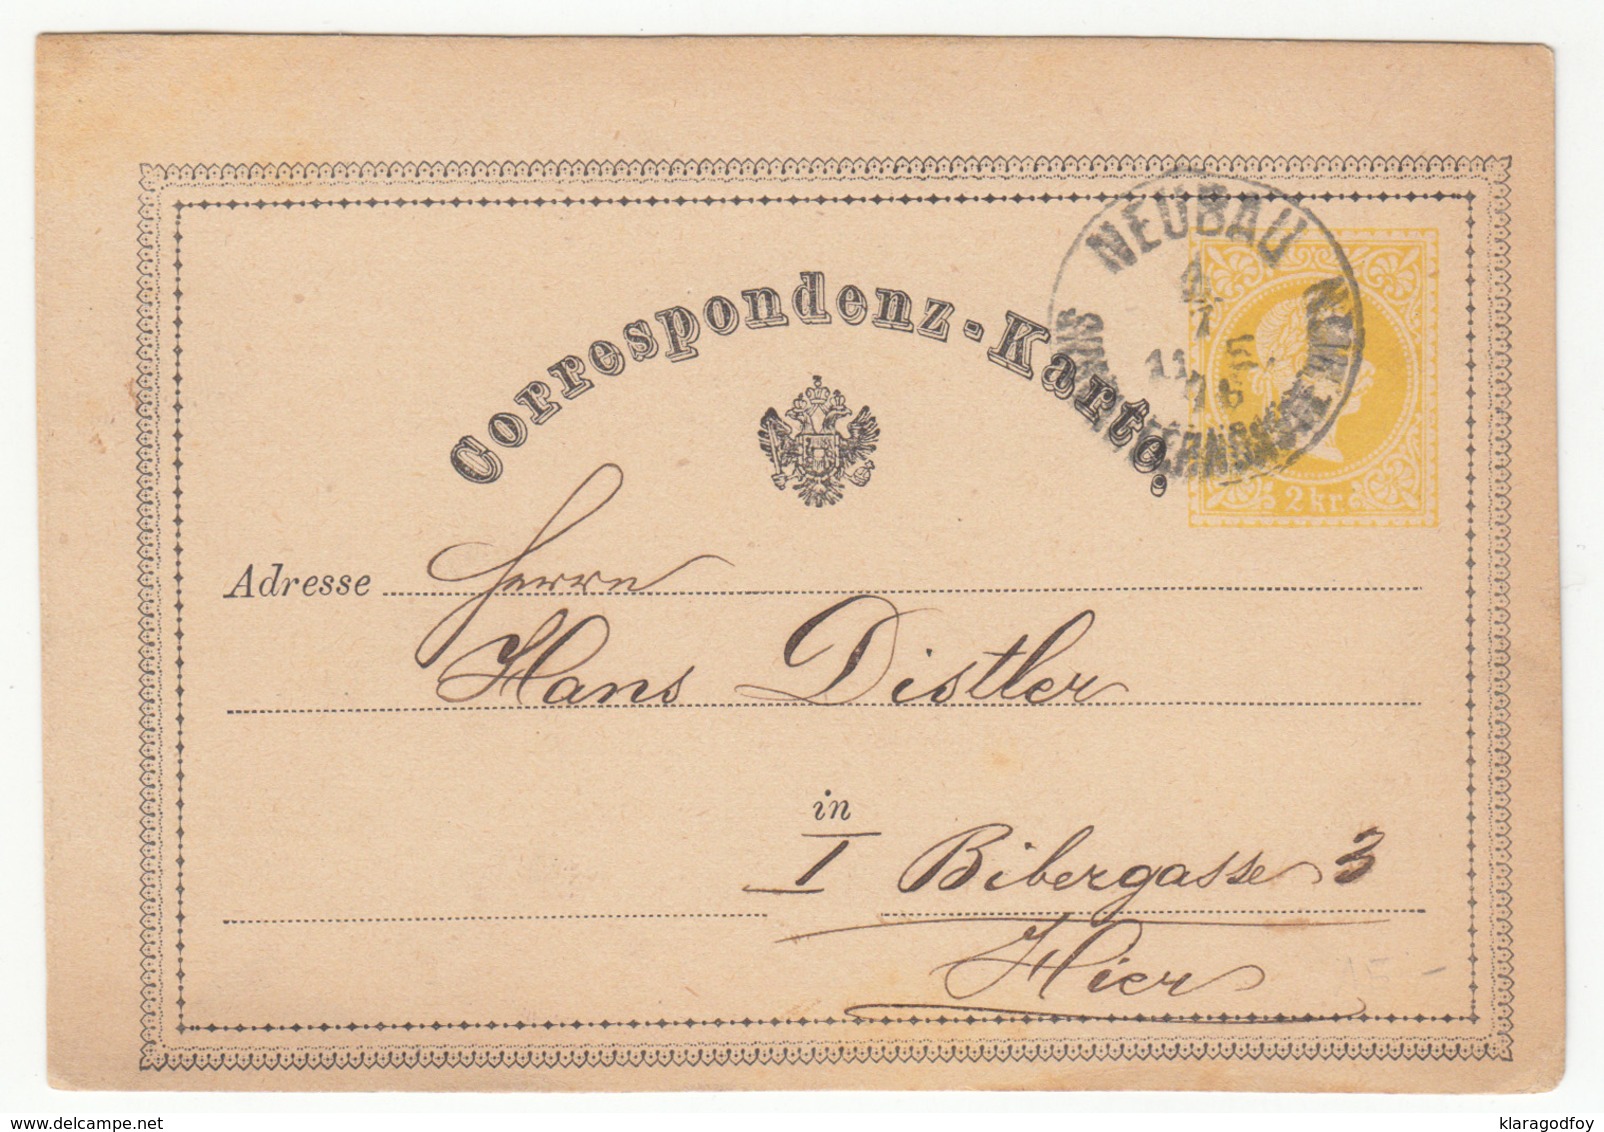 Correspondenz-Karte.
NEUBAU
WIEN
11 5
76
2 kr.
Adresse Herrn
Hans Distler
in
I Bibergasse 3
Hier
delcampe.net
klaragodfoy